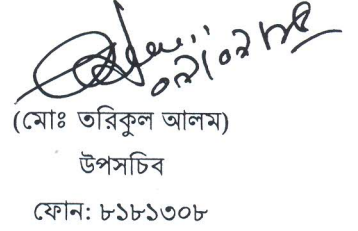 (মোঃ তরিকুল আলম)
উপসচিব
ফোন: ৮১৮১৩০৮